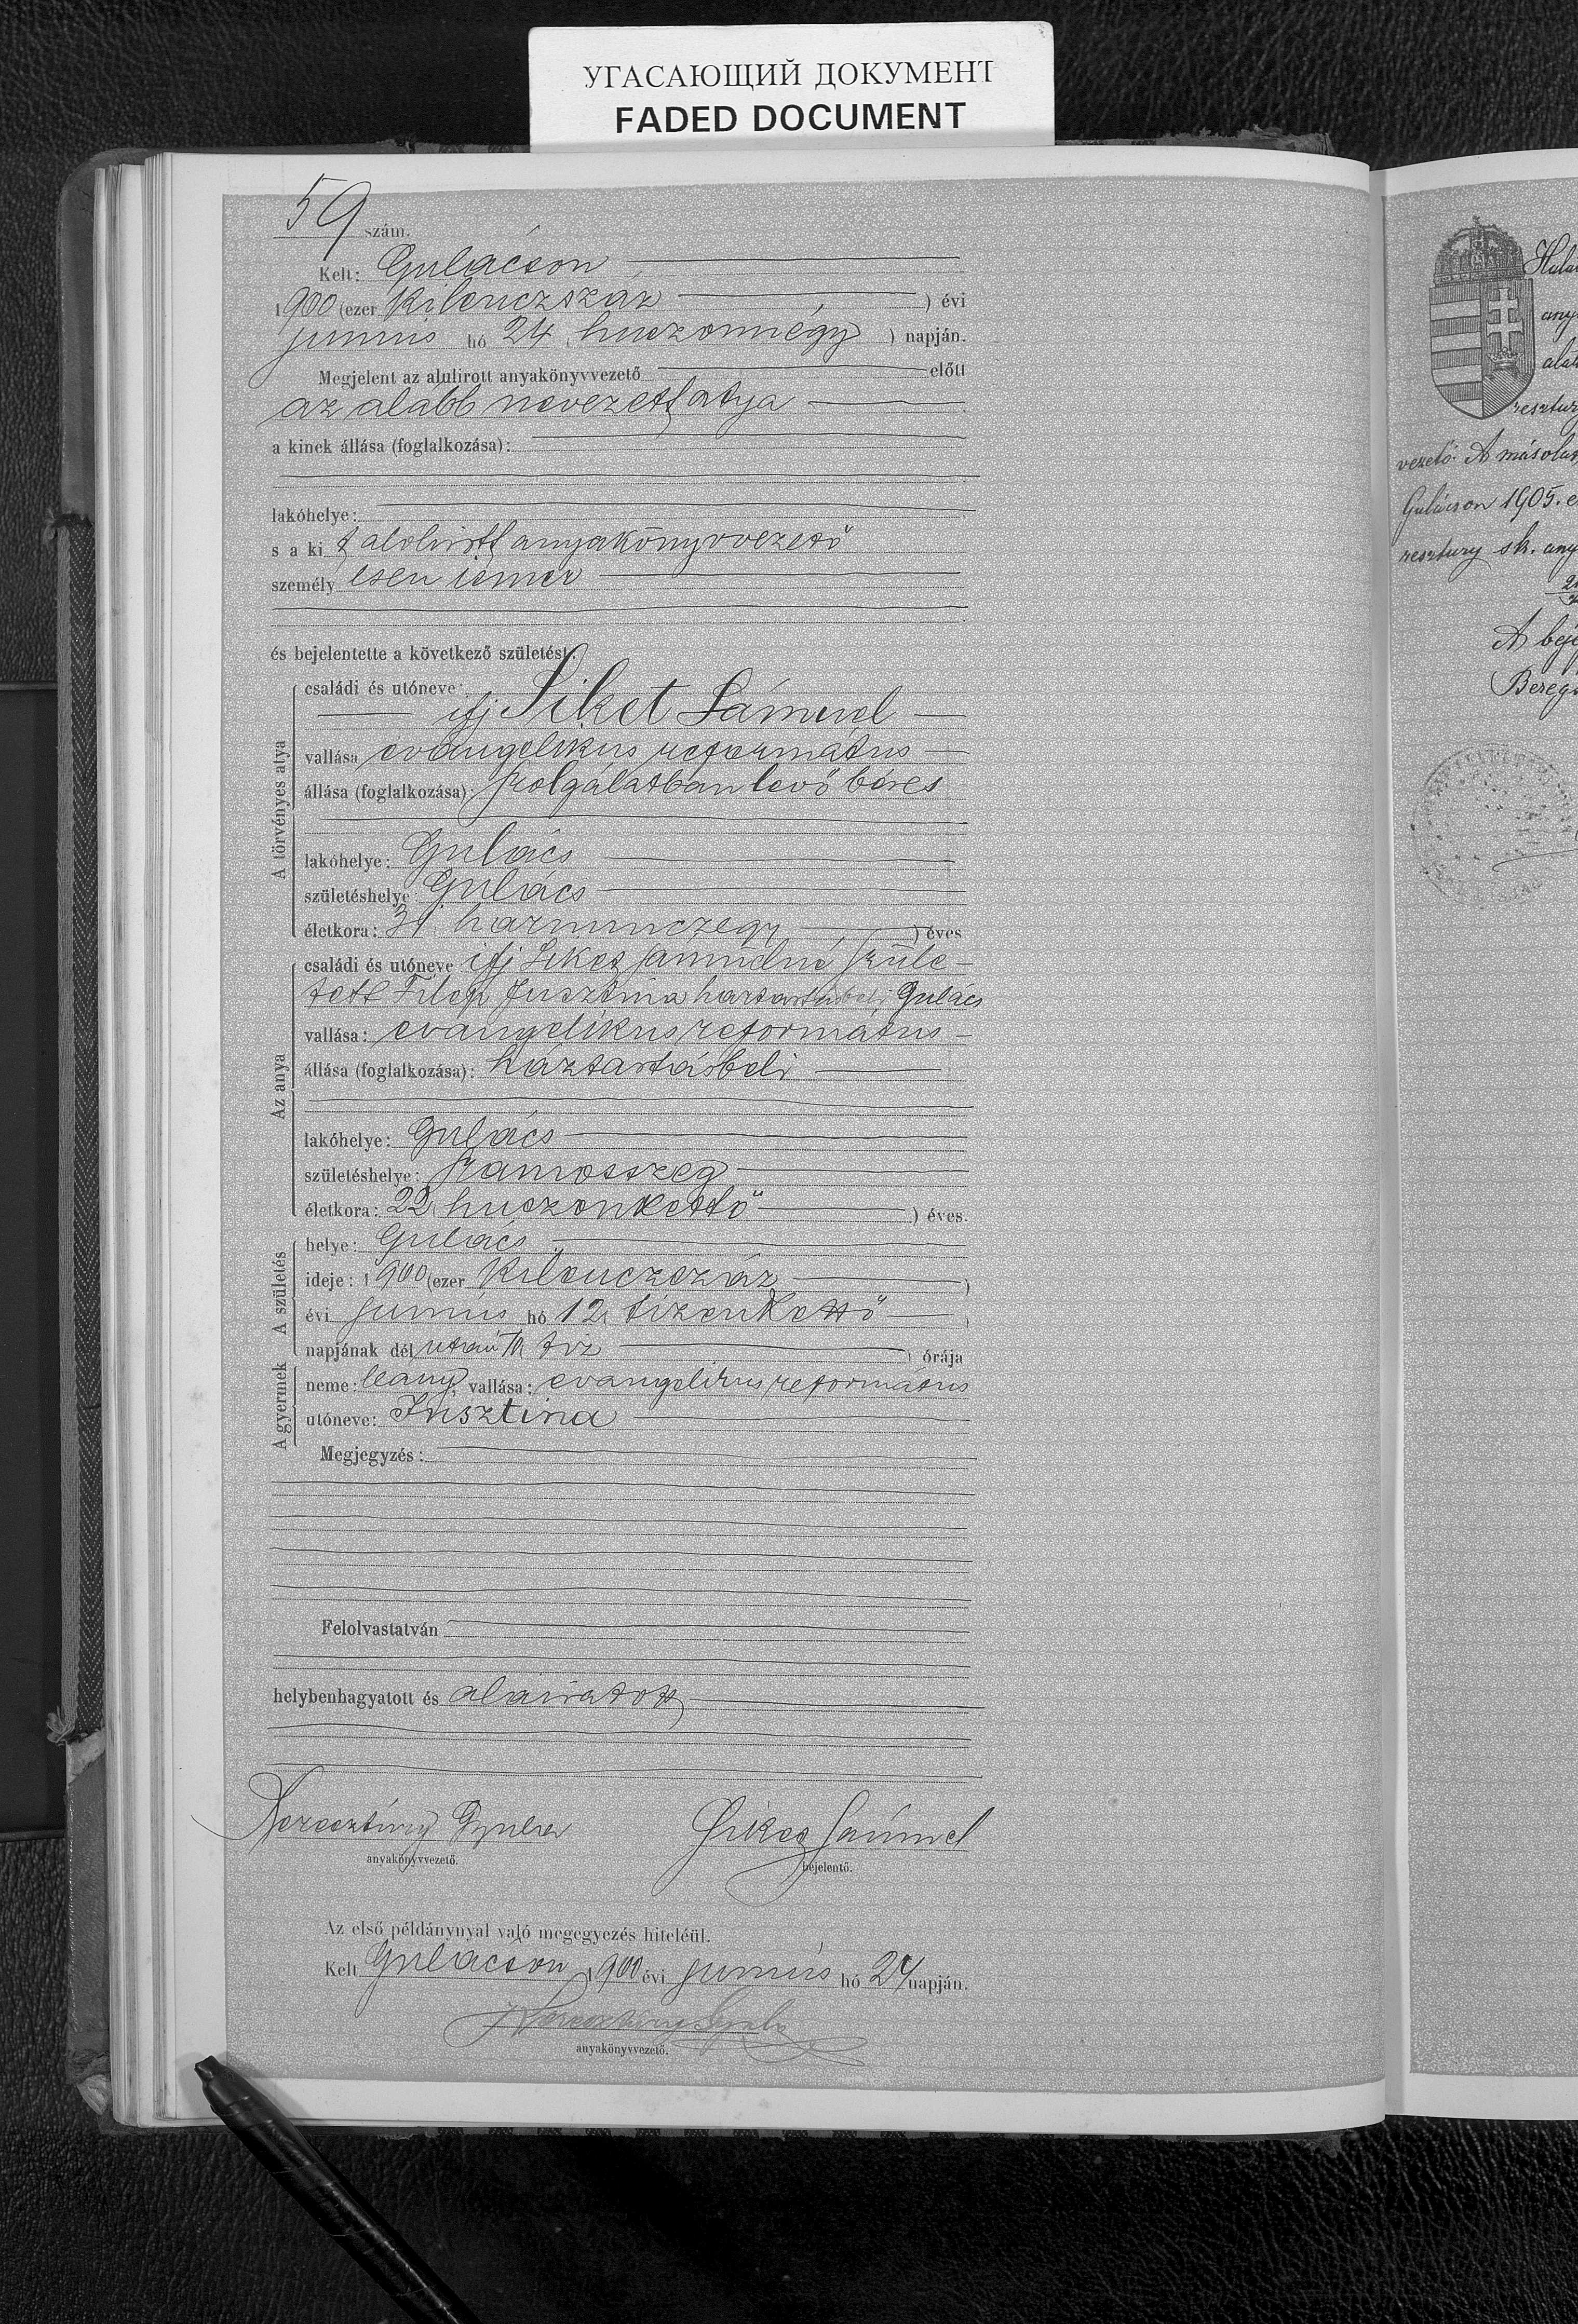 УГАСАЮЩИЙ ДОКУМЕНТ
FADED DOCUMENT
59 szám.
Kelt: Gulácson
1900 (ezer kilenczszáz ) évi
junius hó 24 (huszonnégy ) napján.
Megjelent az alulirott anyakönyvvezető előtt
az alább nevezett atya
a kinek állása (foglalkozása):
lakóhelye:
s a ki t alolirott anyakönyvvezető
személy esen ismer
és bejelentette a következő születést:
A törvényes atya
családi és utóneve:
ifj Siket Sámuel
vallása evangelikus református
állása (foglalkozása): szolgálatban levő béres
lakóhelye: Gulács
születéshelye: Gulács
életkora: 31 harmincczegy ) éves
Az anya
családi és utóneve ifj Siket Sámuelné szüle-
tett Filep Jusztina háztartásbeli Gulács
vallása: evangelikus református
állása (foglalkozása): háztartásbeli
lakóhelye: Gulács
születéshelye: Szamosszeg
életkora: 22 huszonkettő ) éves.
A születés
helye: Gulács
ideje: 1900 (ezer kilenczszáz )
évi junius hó 12 tizenkettő )
napjának dél után 10 tiz ) órája
A gyermek
neme: leány, vallása: evangelikus református
utóneve: Jusztina
Megjegyzés:
Felolvastatván
helybenhagyatott és aláiratott
Neresztury Gyula Siket Sámuel
anyakönyvvezető. bejelentő.
Az első példánynyal való megegyezés hiteléül.
Kelt Gulácson 1900 évi junius hó 24 napján.
Neresztury Gyula
anyakönyvvezető.
any
alat
resztury
vezető. A másolat
Gulácson 1905. e
resztury sk. any
A bej
Bereg